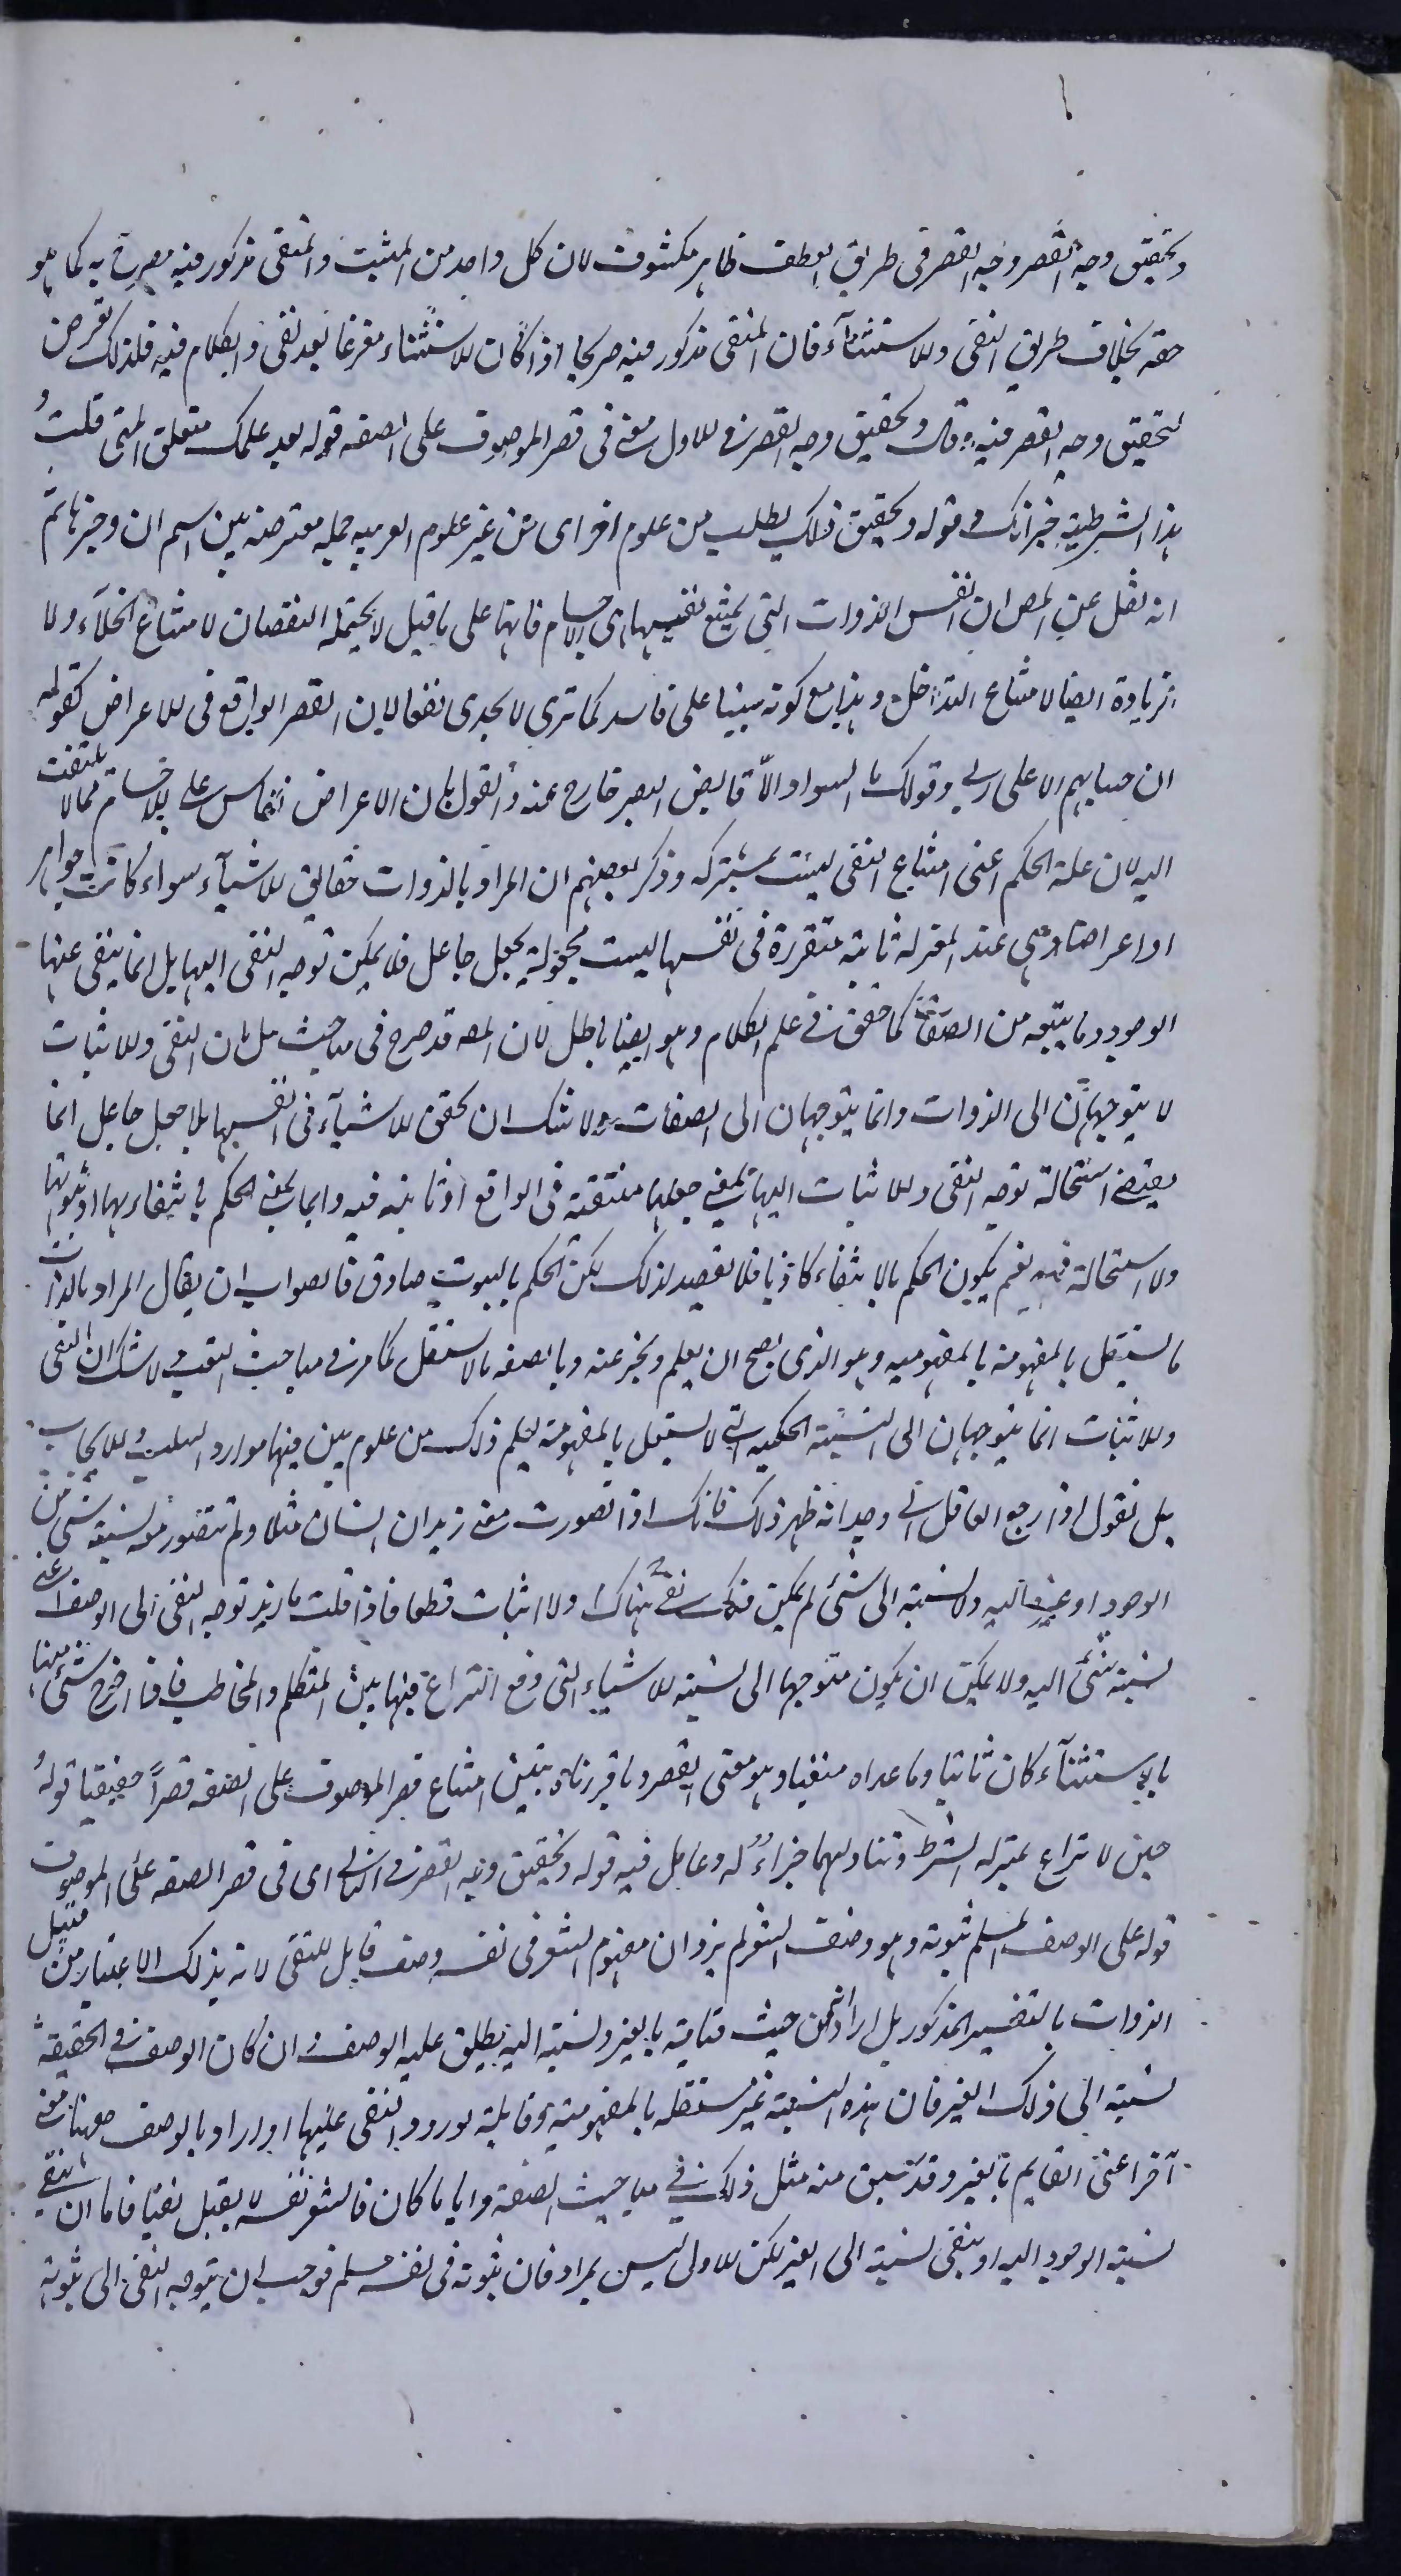 وتحقيق وجه القصر وجه القصر فى طريق العطف ظاهر مكشوف لان كل واحد من المثبت والمنفى مذكور فيه مصرح به كما هو
حقه بخلاف طريق النفى والاستثناء فان المنفى مذكور فيه صريحا اذا كان الاستثناء مفرغا بعد نفى والكلام فيه فلذلك تعرض
لتحقيق وجه القصر فيه قال وتحقيق وجه القصر فى الاول يعنى فى قصر الموصوف على الصفة قوله بعد علمك متعلق المتى قلت
هذا الشرطية خبر انك وقوله وتحقيق ذلك يطلب من علوم اخر اى من غير علوم العربية جملة معترضة بين اسم ان وخبرها ثم
انه نقل عن المص ان انفس الذوات التى يمتنع نفيها اى الاجسام فانها على ما قيل لا يحتمله النقصان لامتناع الخلاء ولا
الزيادة ايضا لامتناع التداخل وهذا مع كونه مبنيا على فاسد كما ترى لا يجدى نفعا لان القصر الواقع فى الاعراض كقوله
ان حسابهم الا على ربى وقولك ما السواد الا قابض البصر خارج عنه والقول بان الاعراض تنقاس على الاجسام مما لا يلتفت
اليه لان علة الحكم اعنى امتناع النفى ليست مشتركة وذكر بعضهم ان المراد بالذوات حقائق الاشياء سواء كانت جواهر
او اعراضا وهى عند المعتزلة ثابتة متقررة فى نفسها ليست مجعولة بجعل جاعل فلا يمكن توجه النفى اليها بل انما ينفى عنها
الوجود وما يتبعه من الصفات كما حقق فى علم الكلام وهو ايضا باطل لان المص قد صرح فى مباحث هل بان النفى والاثبات
لا يتوجهان الى الذوات وانما يتوجهان الى الصفات ولا شك ان تحقق الاشياء فى انفسها بلا جعل جاعل انما
يقتضى استحالة توجه النفى والاثبات اليها بمعنى جعلها منتفية فى الواقع او ثابتة فيه واما بمعنى الحكم بانتفائها او ثبوتها
ولا استحالة فيه نعم يكون الحكم بالانتفاء كاذبا فلا يقصد لذلك لكن الحكم بالثبوت صادق فالصواب ان يقال المراد بالذات
ما يستقل بالمفهومة بالمفهومية وهو الذى يصح ان يعلم ويخبر عنه وبالصفة ما لا يستقل كما مر فى مباحث التعريف ولا شك ان النفى
والاثبات انما يتوجهان الى النسبة الحكمية التى لا يستقل بالمفهومة ليعلم ذلك من علوم بين فيها موارد السلب والايجاب
بل نقول اذا رجع العاقل الى وجدانه ظهر ذلك فانك اذا تصورت معنى زيد ان انسان مثلا ولم تتصور معه نسبة شئ من
الوجود او غيره اليه ولا نسبته الى شئ لم يمكن منك نفى هناك ولا اثبات قطعا فاذا قلت ما زيد توجه النفى الى الوصف اعنى
نسبة شئ اليه ولا يمكن ان يكون متوجها الى نسبة الاشياء التى وقع النزاع فيها بين المتكلم والمخاطب فاذا اخرج شئ منها
بالاستثناء كان ثابتا وما عداه منفيا وهو معنى القصر وبما قررناه يتبين امتناع قصر الموصوف على الصفة قصرا حقيقيا قوله
حين لا نزاع بمنزلة الشرط وتناولهما جزاء له وعامل فيه قوله وتحقيق وجه القصر فى الثانى اى فى قصر الصفة على الموصوف
قوله على الوصف المسلم ثبوته وهو وصف الشعر لم يرد ان مفهوم الشعر فى نفسه وصف قابل للنفى لانه بذلك الاعتبار من قبيل
الذوات بالتفسير المذكور بل اراد انه من حيث قيامه بالغير ونسبته اليه يطلق عليه الوصف وان كان الوصف فى الحقيقة
نسبته الى ذلك الغير فان هذه النسبة غير مستقلة بالمفهومية وقابلة لورود النفى عليها او اراد بالوصف ههنا معنى
آخر اعنى القايم بالغير وقد سبق منه مثل ذلك فى مباحث الصفة وايا ما كان فالشعر نفسه لا يقبل نفيا فاما ان ينفى
نسبة الوجود اليه او ينفى نسبته الى الغير لكن الاول ليس بمراد فان ثبوته فى نفسه مسلم فوجب ان يتوجه النفى الى ثبوته